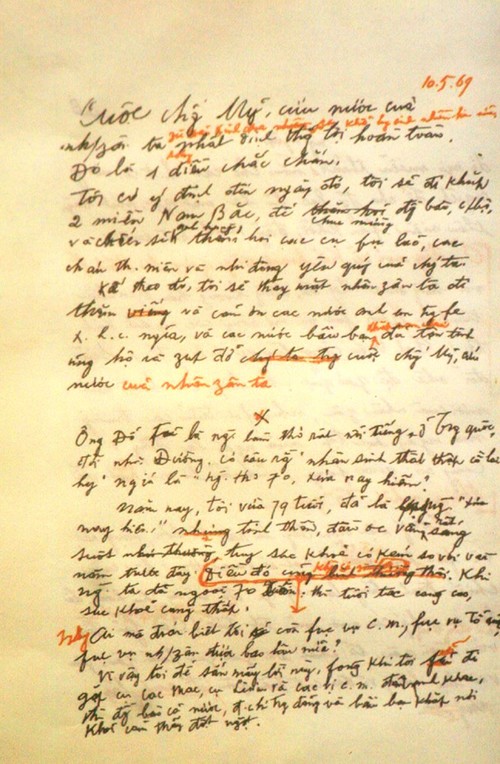 10.5.69
Cuộc chg Mỹ, cứu nước của
nh/zân ta phải kinh qua
nhất định thg lợi hoàn toàn.
Đó là 1 điều chắc chắn.
Tôi có ý định đến ngày đó, tôi sẽ đi khắp
2 miền Nam Bắc, để chúc mừng đg bào, c/bộ,
và chiến sĩ anh hùng, thăm hỏi các cụ fụ lão, các
cháu th. niên và nhi đồng yêu quý của chg ta.
Kế theo đó, tôi sẽ thay mặt nhân zân ta đi
thăm và cám ơn các nước anh em trg fe
X. h. c. nghĩa, và các nước bầu bạn đã tận tình
ủng hộ và zúp đỡ cuộc chg Mỹ, cứu
nước của nhân zân ta
X
Ông Đỗ Fủ là ngời làm thơ rất nổi tiếng ở Trg quốc,
đời nhà Đường, có câu rằng "nhân sinh thất thập cổ lai
hy" nghĩa là "ngời thọ 70, xưa nay hiếm".
Năm nay, tôi vừa 79 tuổi, đã là "xưa
nay hiếm" nhưng tinh thần, đầu óc vẫn rất sáng
suốt, tuy sức khoẻ có kém so với vài
năm trước đây. Khi
ngời ta đã ngoài 70 xuân, thì tuổi tác càng cao,
sức khoẻ càng thấp.
Ai mà đoán biết tôi còn fục vụ c. m., fục vụ Tổ quốc,
fục vụ nh/zân được bao lâu nữa?
Vì vậy tôi để sẵn mấy lời này, fòng khi tôi sẽ đi
gặp cụ Các Mác, cụ Lênin và các vị c. m. đàn anh khác,
thì đg bào cả nước, đ. chí trg đảng và bầu bạn khắp nơi
khỏi cảm thấy đột ngột.